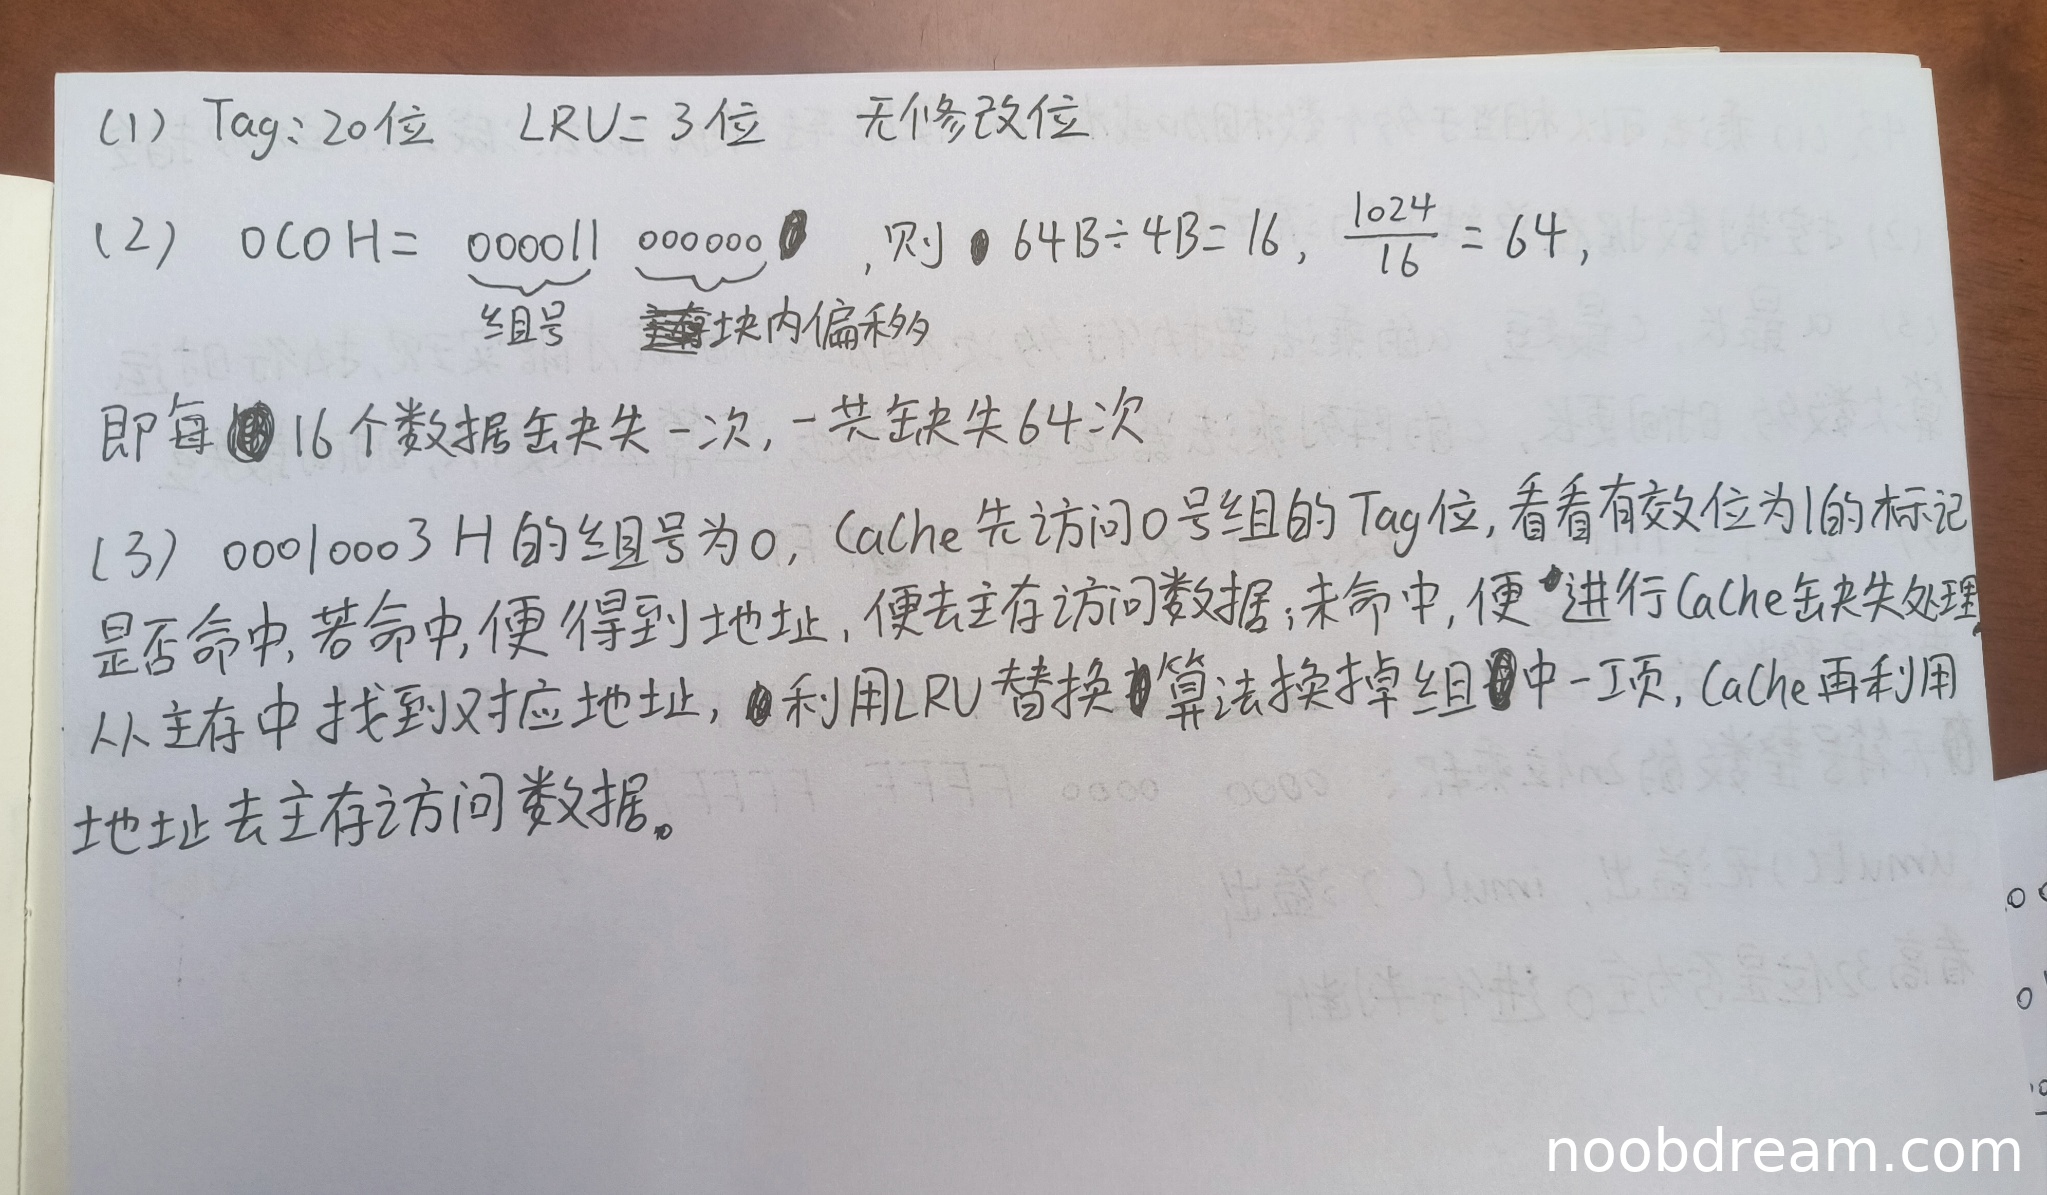 (1) Tag: 20位 LRU= 3位 无修改位
(2) 0C0H= 000011 000000 ,则 64B÷4B=16, 1024/16 = 64,
组号 块内偏移
即每16个数据缺失一次,一共缺失64次
(3) 00010003H的组号为0, Cache先访问0号组的Tag位,看看有效位为1的标记
是否命中,若命中,便得到地址,便去主存访问数据;未命中,便进行Cache缺失处理,
从主存中找到对应地址,利用LRU替换算法换掉组中一项,Cache再利用
地址去主存访问数据。
noobdream.com